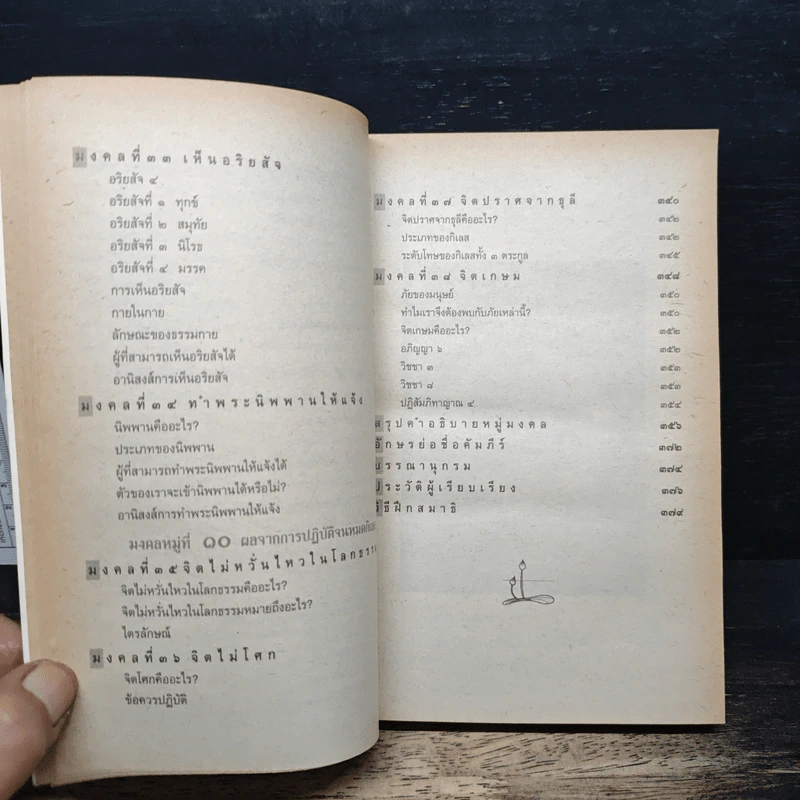 มงคลที่ ๓๓ เห็นอริยสัจ
อริยสัจ ๔
อริยสัจที่ ๑ ทุกข์
อริยสัจที่ ๒ สมุทัย
อริยสัจที่ ๓ นิโรธ
อริยสัจที่ ๔ มรรค
การเห็นอริยสัจ
กายในกาย
ลักษณะของธรรมกาย
ผู้ที่สามารถเห็นอริยสัจได้
อานิสงส์การเห็นอริยสัจ
มงคลที่ ๓๔ ทำพระนิพพานให้แจ้ง
นิพพานคืออะไร?
ประเภทของนิพพาน
ผู้ที่สามารถทำพระนิพพานให้แจ้งได้
ตัวของเราจะเข้านิพพานได้หรือไม่?
อานิสงส์การทำพระนิพพานให้แจ้ง
มงคลหมู่ที่ ๑๐ ผลจากการปฏิบัติจนหมดกิเลส
มงคลที่ ๓๕ จิตไม่หวั่นไหวในโลกธรรม
จิตไม่หวั่นไหวในโลกธรรมคืออะไร?
จิตไม่หวั่นไหวในโลกธรรมหมายถึงอะไร?
ไตรลักษณ์
มงคลที่ ๓๖ จิตไม่โศก
จิตโศกคืออะไร?
ข้อควรปฏิบัติ
มงคลที่ ๓๗ จิตปราศจากธุลี ๓๔๐
จิตปราศจากธุลีคืออะไร? ๓๔๒
ประเภทของกิเลส ๓๔๒
ระดับโทษของกิเลสทั้ง ๓ ตระกูล ๓๔๕
มงคลที่ ๓๘ จิตเกษม ๓๔๘
ภัยของมนุษย์ ๓๕๐
ทำไมเราจึงต้องพบกับภัยเหล่านี้? ๓๕๐
จิตเกษมคืออะไร? ๓๕๒
อภิญญา ๖ ๓๕๒
วิชชา ๓ ๓๕๓
วิชชา ๘ ๓๕๓
ปฏิสัมภิทาญาณ ๔ ๓๕๔
สรุปคำอธิบายหมู่มงคล ๓๕๖
อักษรย่อชื่อคัมภีร์ ๓๗๒
บรรณานุกรม ๓๗๔
ประวัติผู้เรียบเรียง ๓๗๖
วิธีฝึกสมาธิ ๓๗๙